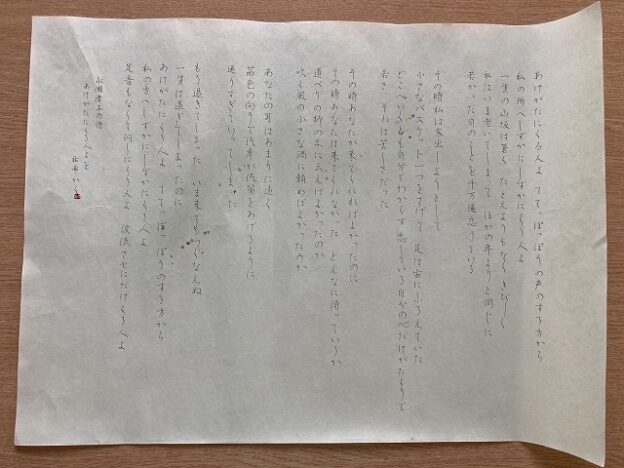 あけがたにくる人よ ててっぽっぽうの声のする方から
私の所へしずかにしずかにくる人よ
一生の山坂は蒼く たとえようもなくきびしく
私はいま老いてしまって ほかの年よりと同じに
若かった日のことを千万遍恋うている
その時私は家出しようとして
小さなバスケット一つをさげて 足は宙にふるえていた
どこへいくとも自分でわからず 恋している自分の心だけがたよりで
若さ それは苦しさだった
その時あなたが来てくれればよかったのに
その時あなたは来てくれなかった どんなに待っているか
道べりの柳の木に云えばよかったのか
吹く風の小さな渦に頼めばよかったのか
あなたの耳はあまりに遠く
茜色の向うで汽車が汽笛をあげるように
通りすぎていってしまった
もう過ぎてしまった いま来てもつぐなえぬ
一生は過ぎてしまったのに
あけがたにくる人よ ててっぽっぽうのする方から
私の方へしずかにしずかにくる人よ
足音もなくて何しにくる人よ 涙流させにだけくる人よ
永瀬清子の詩
あけがたにくる人よを